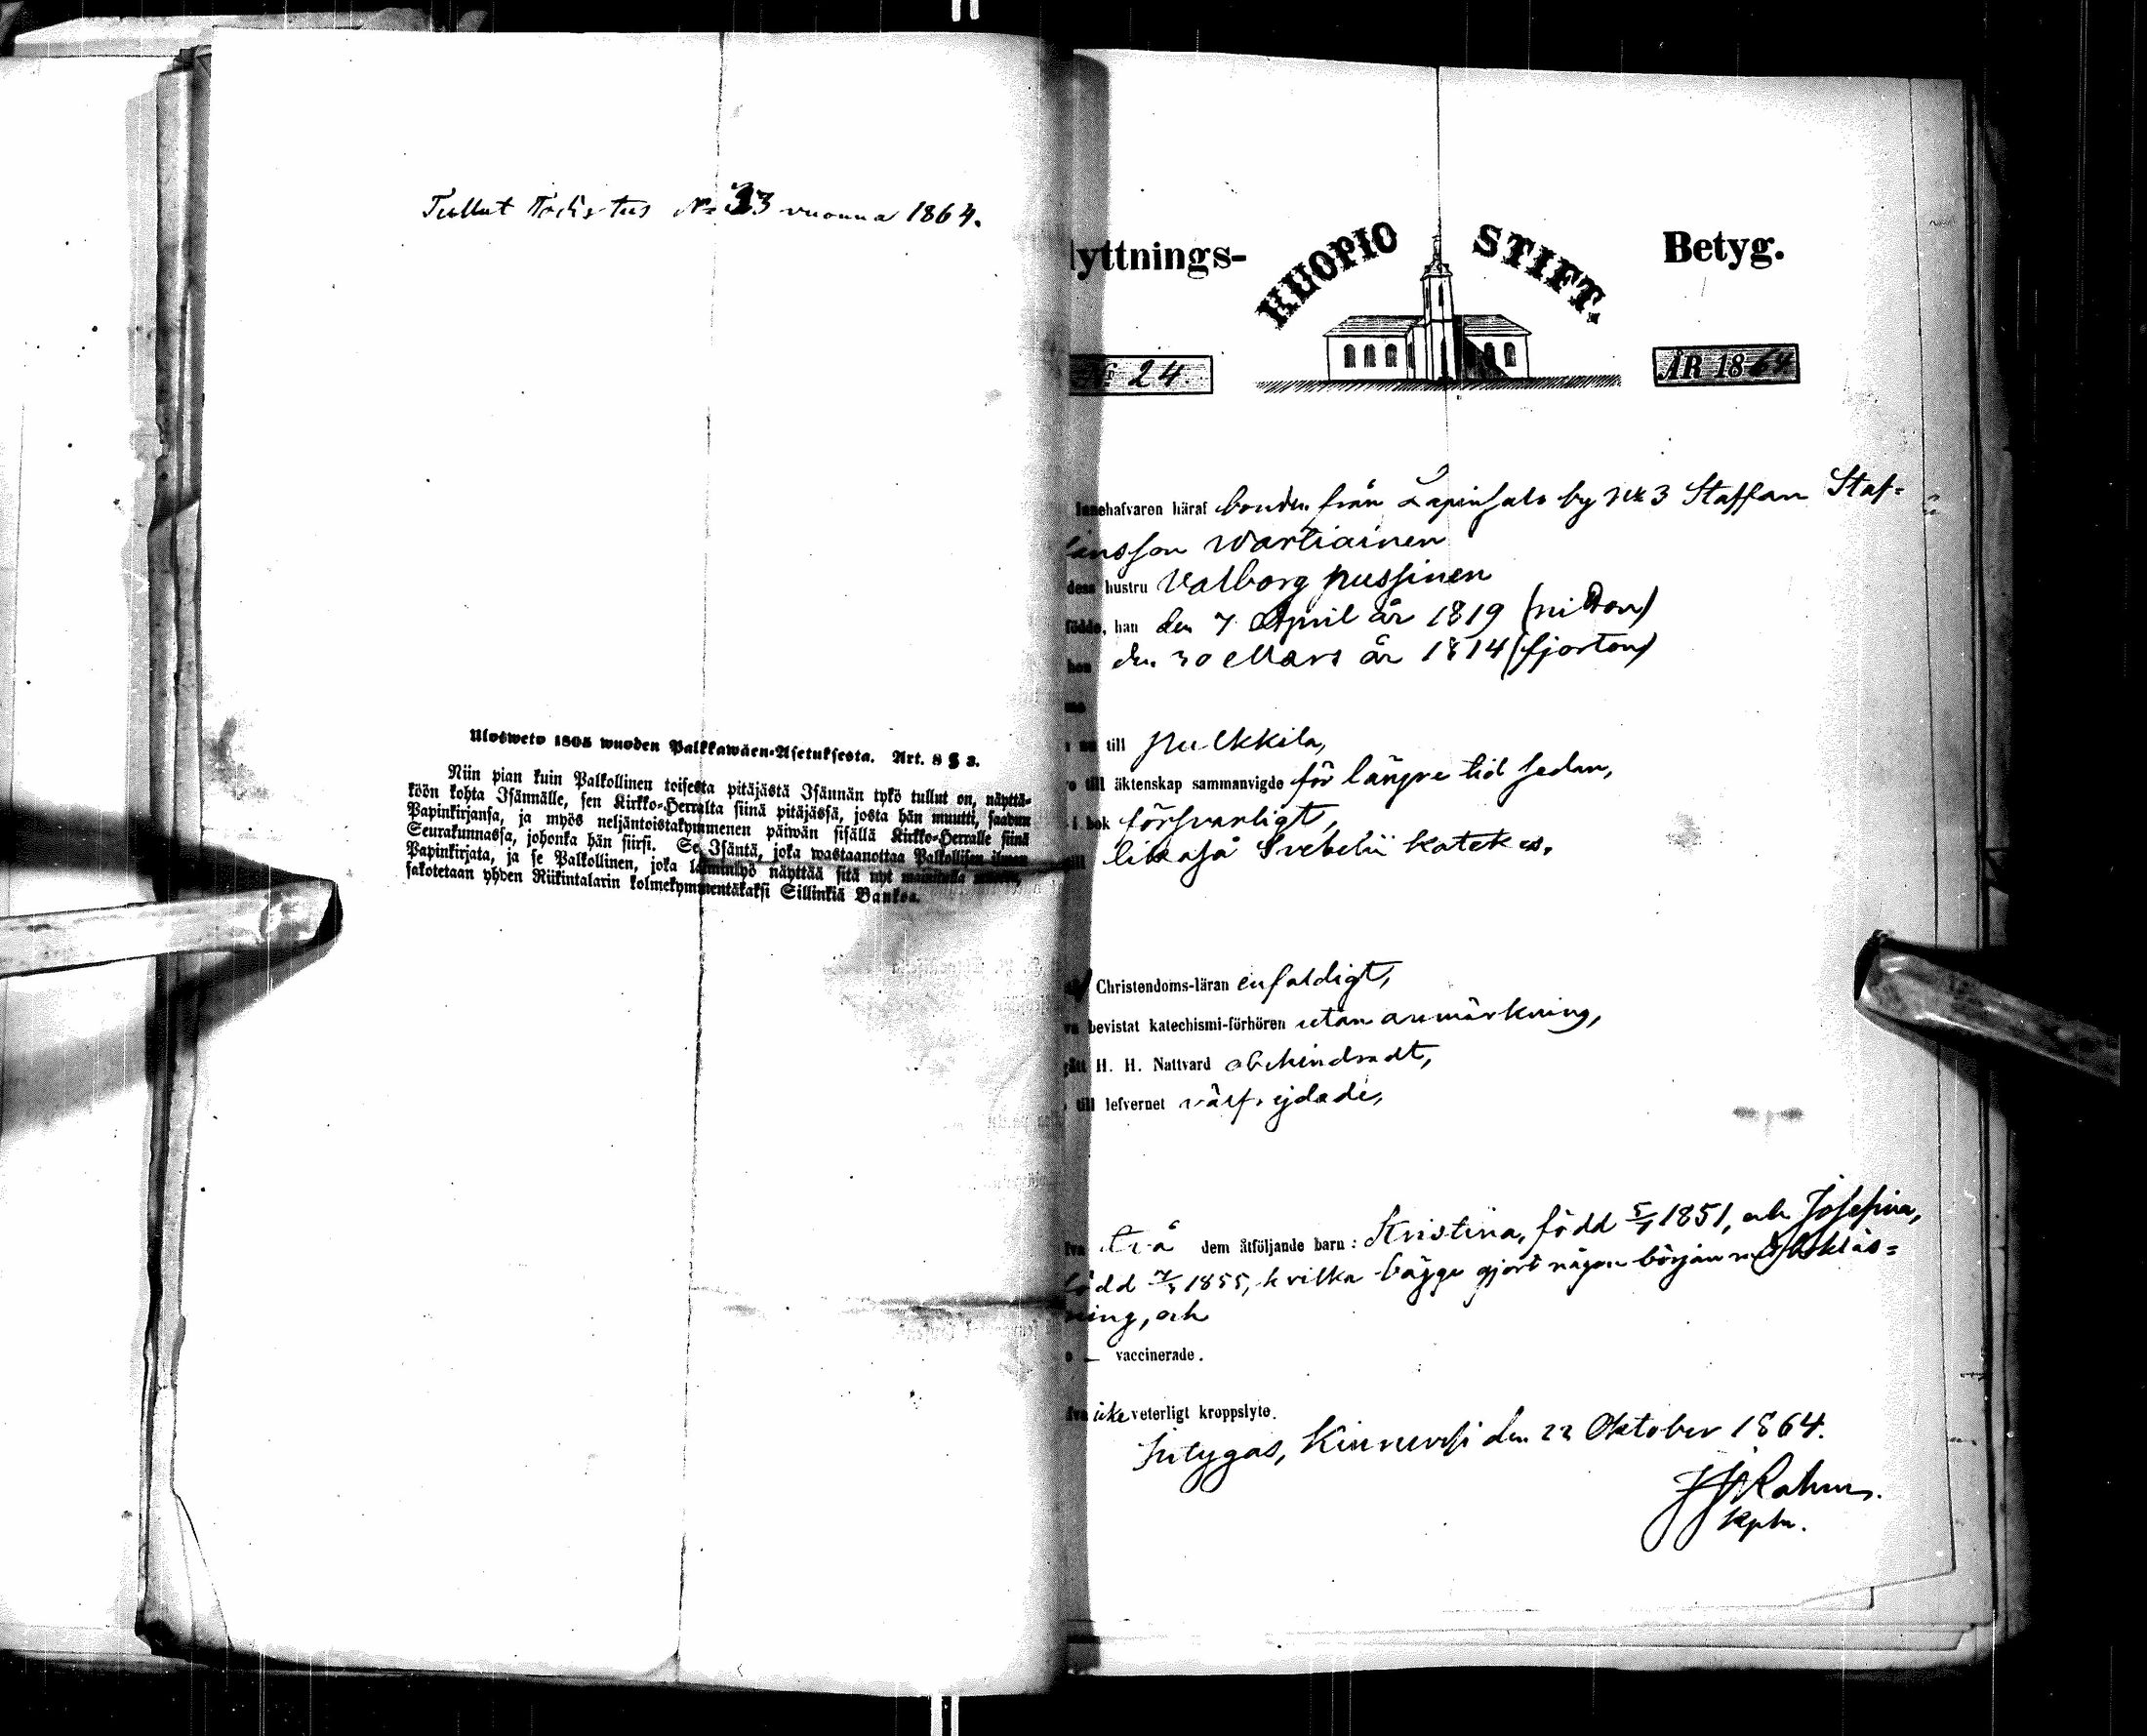 Tullut Todistus No 33 vuonna 1864.
Ulosweto 1805 wuoden Palkkawäen-Asetuksesta. Art. 8 § 3.
Niin pian kuin Palkollinen toisesta pitäjästä Isännän tykö tullut on, näyttä-
köön kohta Isännälle, sen Kirkko-Herralta siinä pitäjässä, josta hän muutti, saadun
Papinkirjansa, ja myös neljäntoistakymmenen päiwän sisällä Kirkko-Herralle siinä
Seurakunnassa, johonka hän siirsi. Se Isäntä, joka wastaanottaa Palkollisen ilman
Papinkirjata, ja se Palkollinen, joka laiminlyö näyttää sitä nyt mainitulla
sakotetaan yhden Riikintalarin kolmekymmentäkaksi Sillinkiä Bankoa.
lyttnings- KUOPIO STIFT. Betyg.
No 24. ÅR 1864
Innehafvaren häraf bonden från Lapinsalo by No 3 Staffan Staf=
fansson Wartiainen
dess hustru Valborg Pussinen
födde, han den 7 April år 1819 (nitton)
hon den 30 Mars år 1814 (fjorton)
nu till Pulkkila,
till äktenskap sammanvigde för längre tid sedan,
i bok försvarligt,
likaså Svebelii katekes,
Christendoms-läran enfaldigt,
bevistat katechismi-förhören utan anmärkning,
gått H. H. Nattvard obehindradt,
till lefvernet välfrejdade,
två dem åtföljande barn: Kristina, född 5/7 1851, och Josefina,
född 7/3 1855, hvilka bägge gjort någon början med bokläs=
ning, och
— vaccinerade.
icke veterligt kroppslyte.
Intygas, Kinnursi den 22 Oktober 1864.
Kpln.